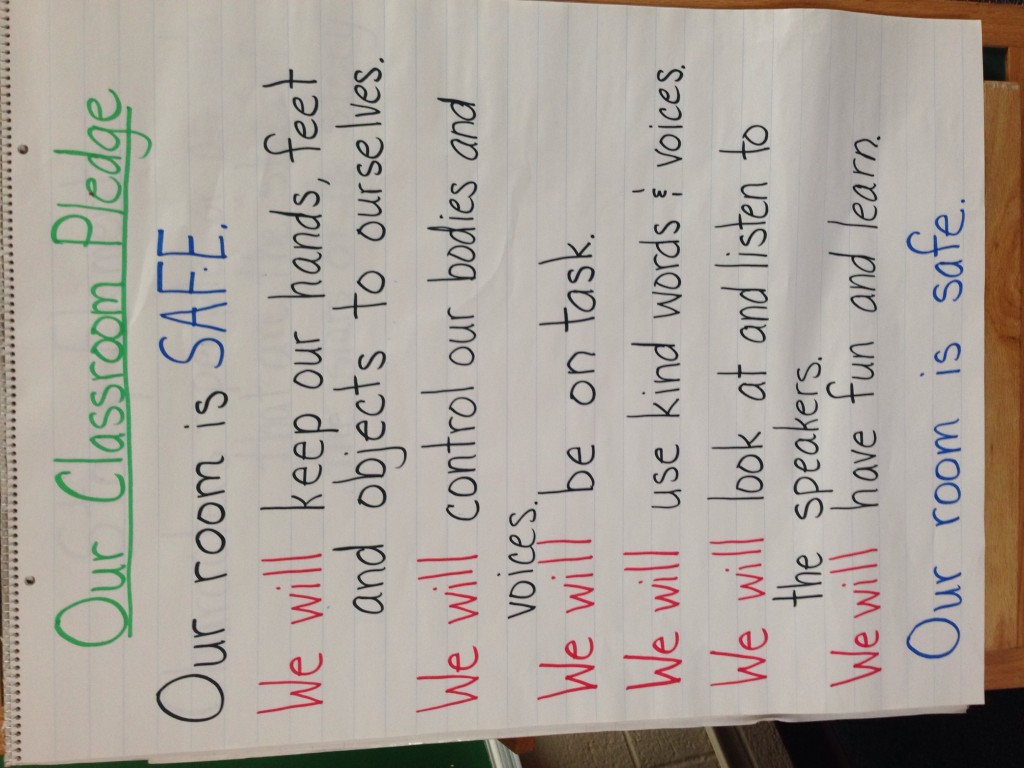 Our Classroom Pledge
Our room is SAFE.
We will keep our hands, feet
and objects to ourselves.
We will control our bodies and
voices.
We will be on task.
We will use kind words & voices.
We will look at and listen to
the speakers.
We will have fun and learn.
Our room is safe.